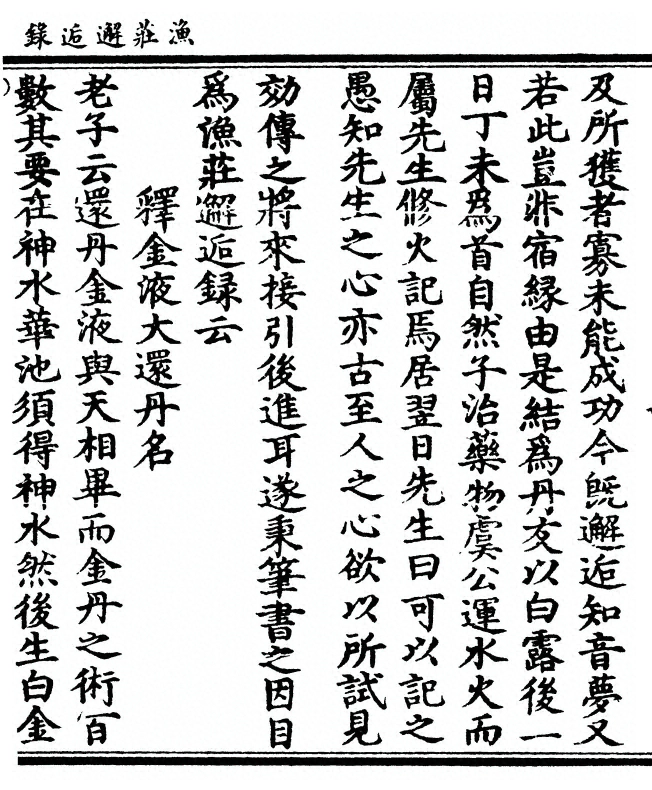 漁莊邂逅錄
及所獲者寡未能成功今既邂逅知音夢又
若此豈非宿緣由是結爲丹友以白露後一
日丁未爲首自然子治藥物虞公運水火而
屬先生修火記焉居翌日先生曰可以記之
愚知先生之心亦古至人之心欲以所試見
効傳之將來接引後進耳遂秉筆書之因目
爲漁莊邂逅録云
釋金液大還丹名
老子云還丹金液與天相畢而金丹之術百
數其要在神水華池須得神水然後生白金